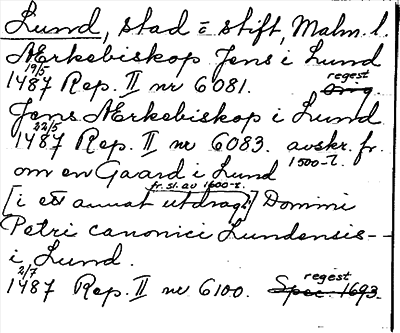 Lund, stad & stift, Malm. l.
Ærkebiskop Jens i Lund
19/5 regest
1487 Rep. II nr 6081. Orig
Jens Ærkebiskop i Lund
22/5
1487 Rep. II nr 6083. avskr. fr.
1500-t.
om en Gaard i Lund
fr. sl. av 1600-t.
[i ett annat utdrag:] Domini
Petri canonici Lundensis--
i Lund.
2/7 regest
1487 Rep. II nr 6100. Spec. 1693.